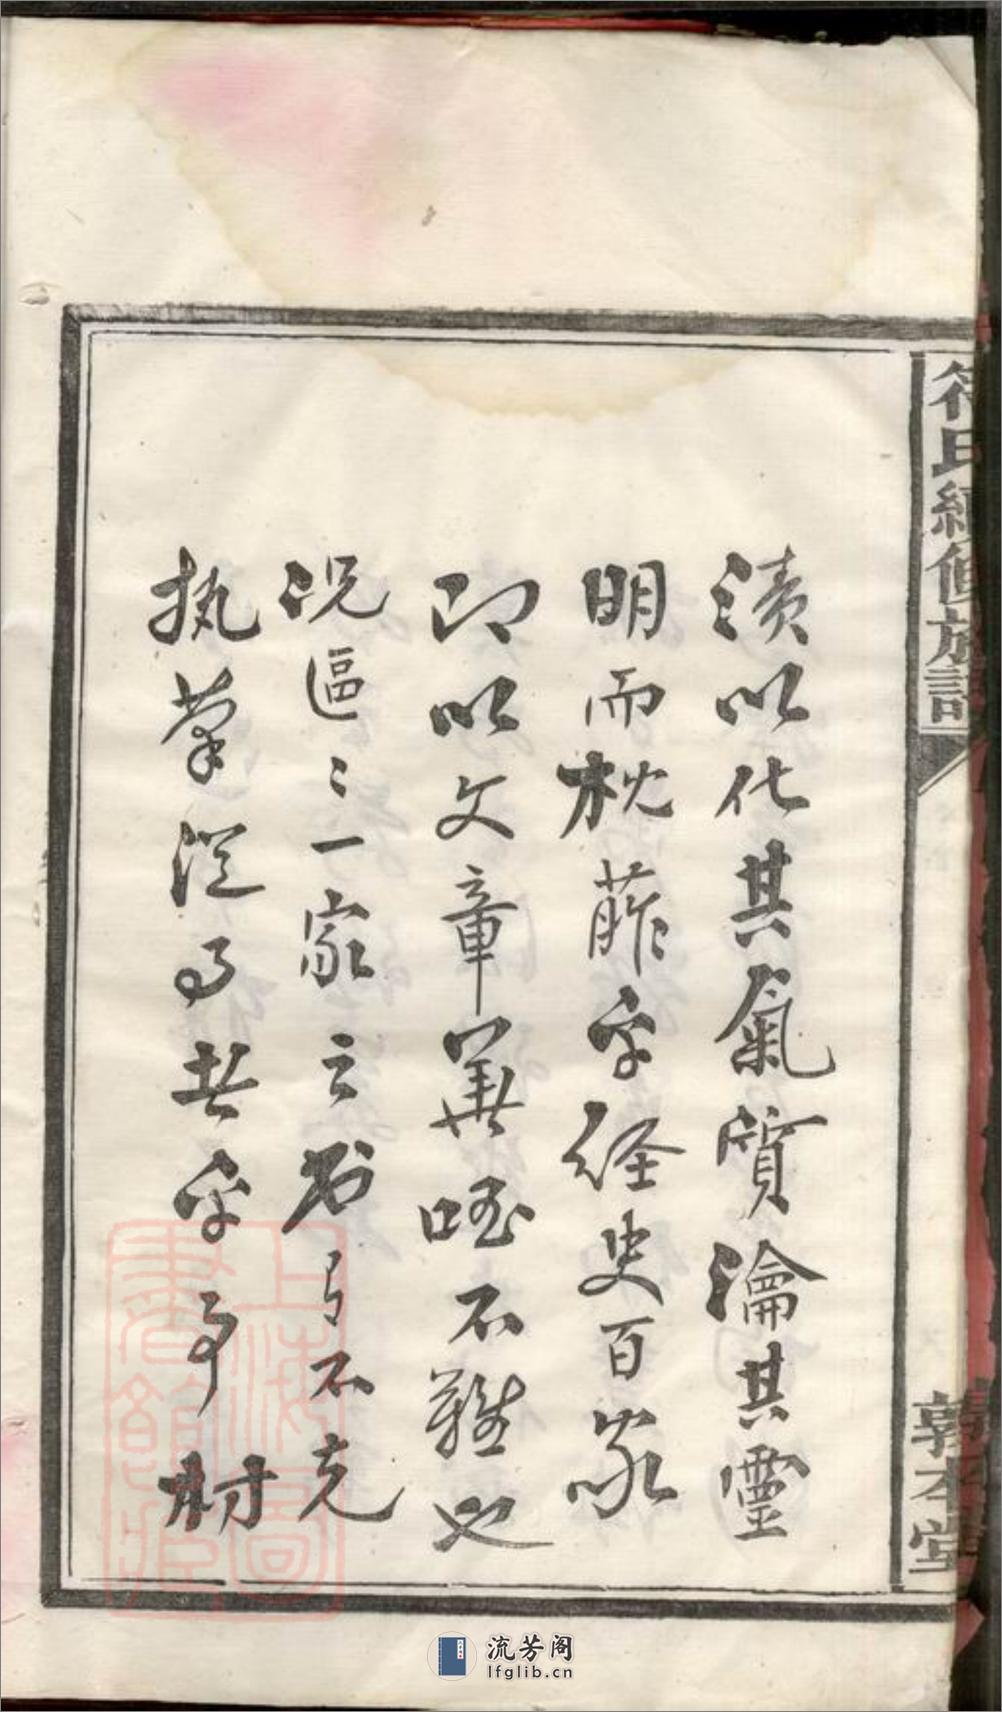 符氏續修族譜
敦本堂
漬以化其氣質瀹其靈
明而枕葄乎經史百家
即以文章華國不難也
况區〻一家之有不克
執筆從事者乎予材
上海圖書館藏
流芳阁
lfglib.cn